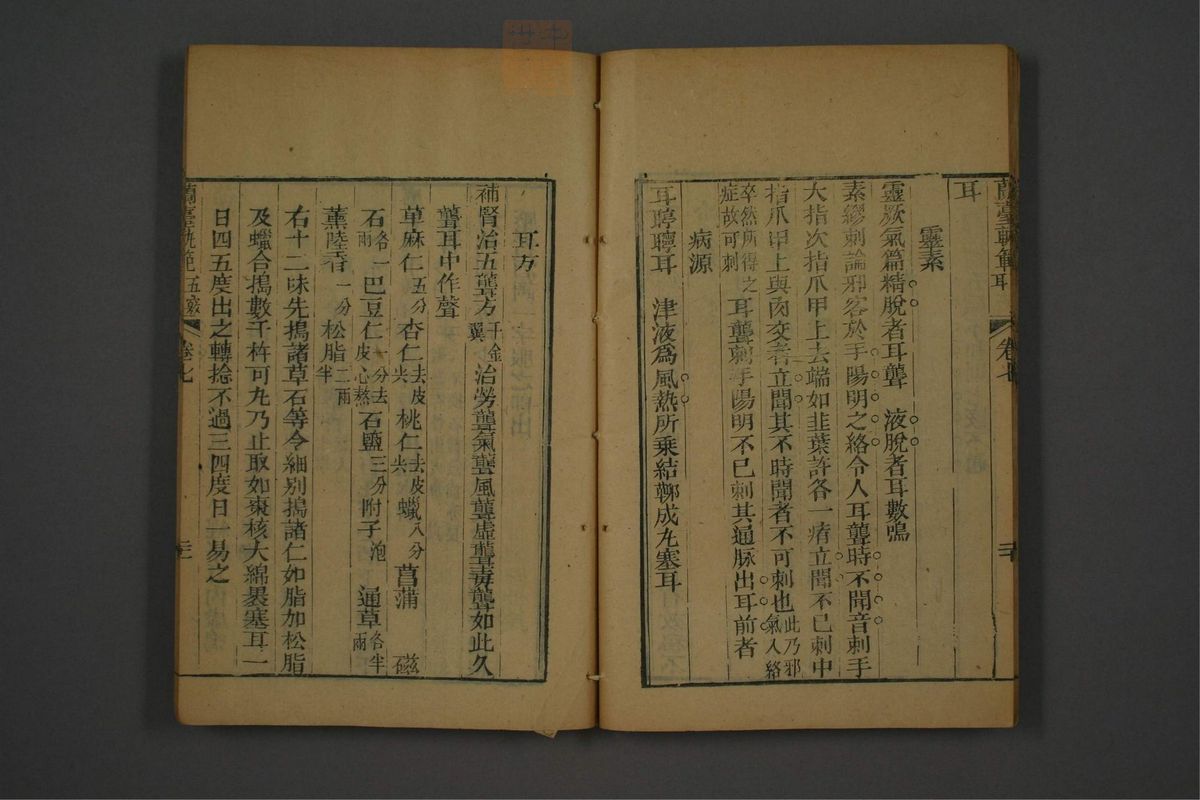 蘭臺軌範 耳 卷七
耳
靈素
靈厥氣篇精脫者耳聾 液脫者耳數鳴
素繆刺論邪客於手陽明之絡令人耳聾時不聞音刺手
大指次指爪甲上去端如韭葉許各一痏立聞不已刺中
指爪甲上與肉交者立聞其不時聞者不可刺也此乃邪氣入絡
卒然所得之症故可刺 耳聾刺手陽明不已刺其通脉出耳前者
病源
耳聤聹耳 津液爲風熱所乘結鞕成丸塞耳
耳方
補腎治五聾方千金翼 治勞聾氣聾風聾虛聾毒聾如此久
聾耳中作聲
萆麻仁五分 杏仁去皮尖 桃仁去皮尖 蠟八分 菖蒲 磁
石各一兩 巴豆仁一分去皮心熬 石鹽三分 附子泡 通草各半兩
薰陸香一分 松脂二兩半
右十二味先搗諸草石等令細别搗諸仁如脂加松脂
及蠟合搗數千杵可丸乃止取如棗核大綿裹塞耳一
日四五度出之轉捻不過三四度日一易之
蘭臺軌範 卷七